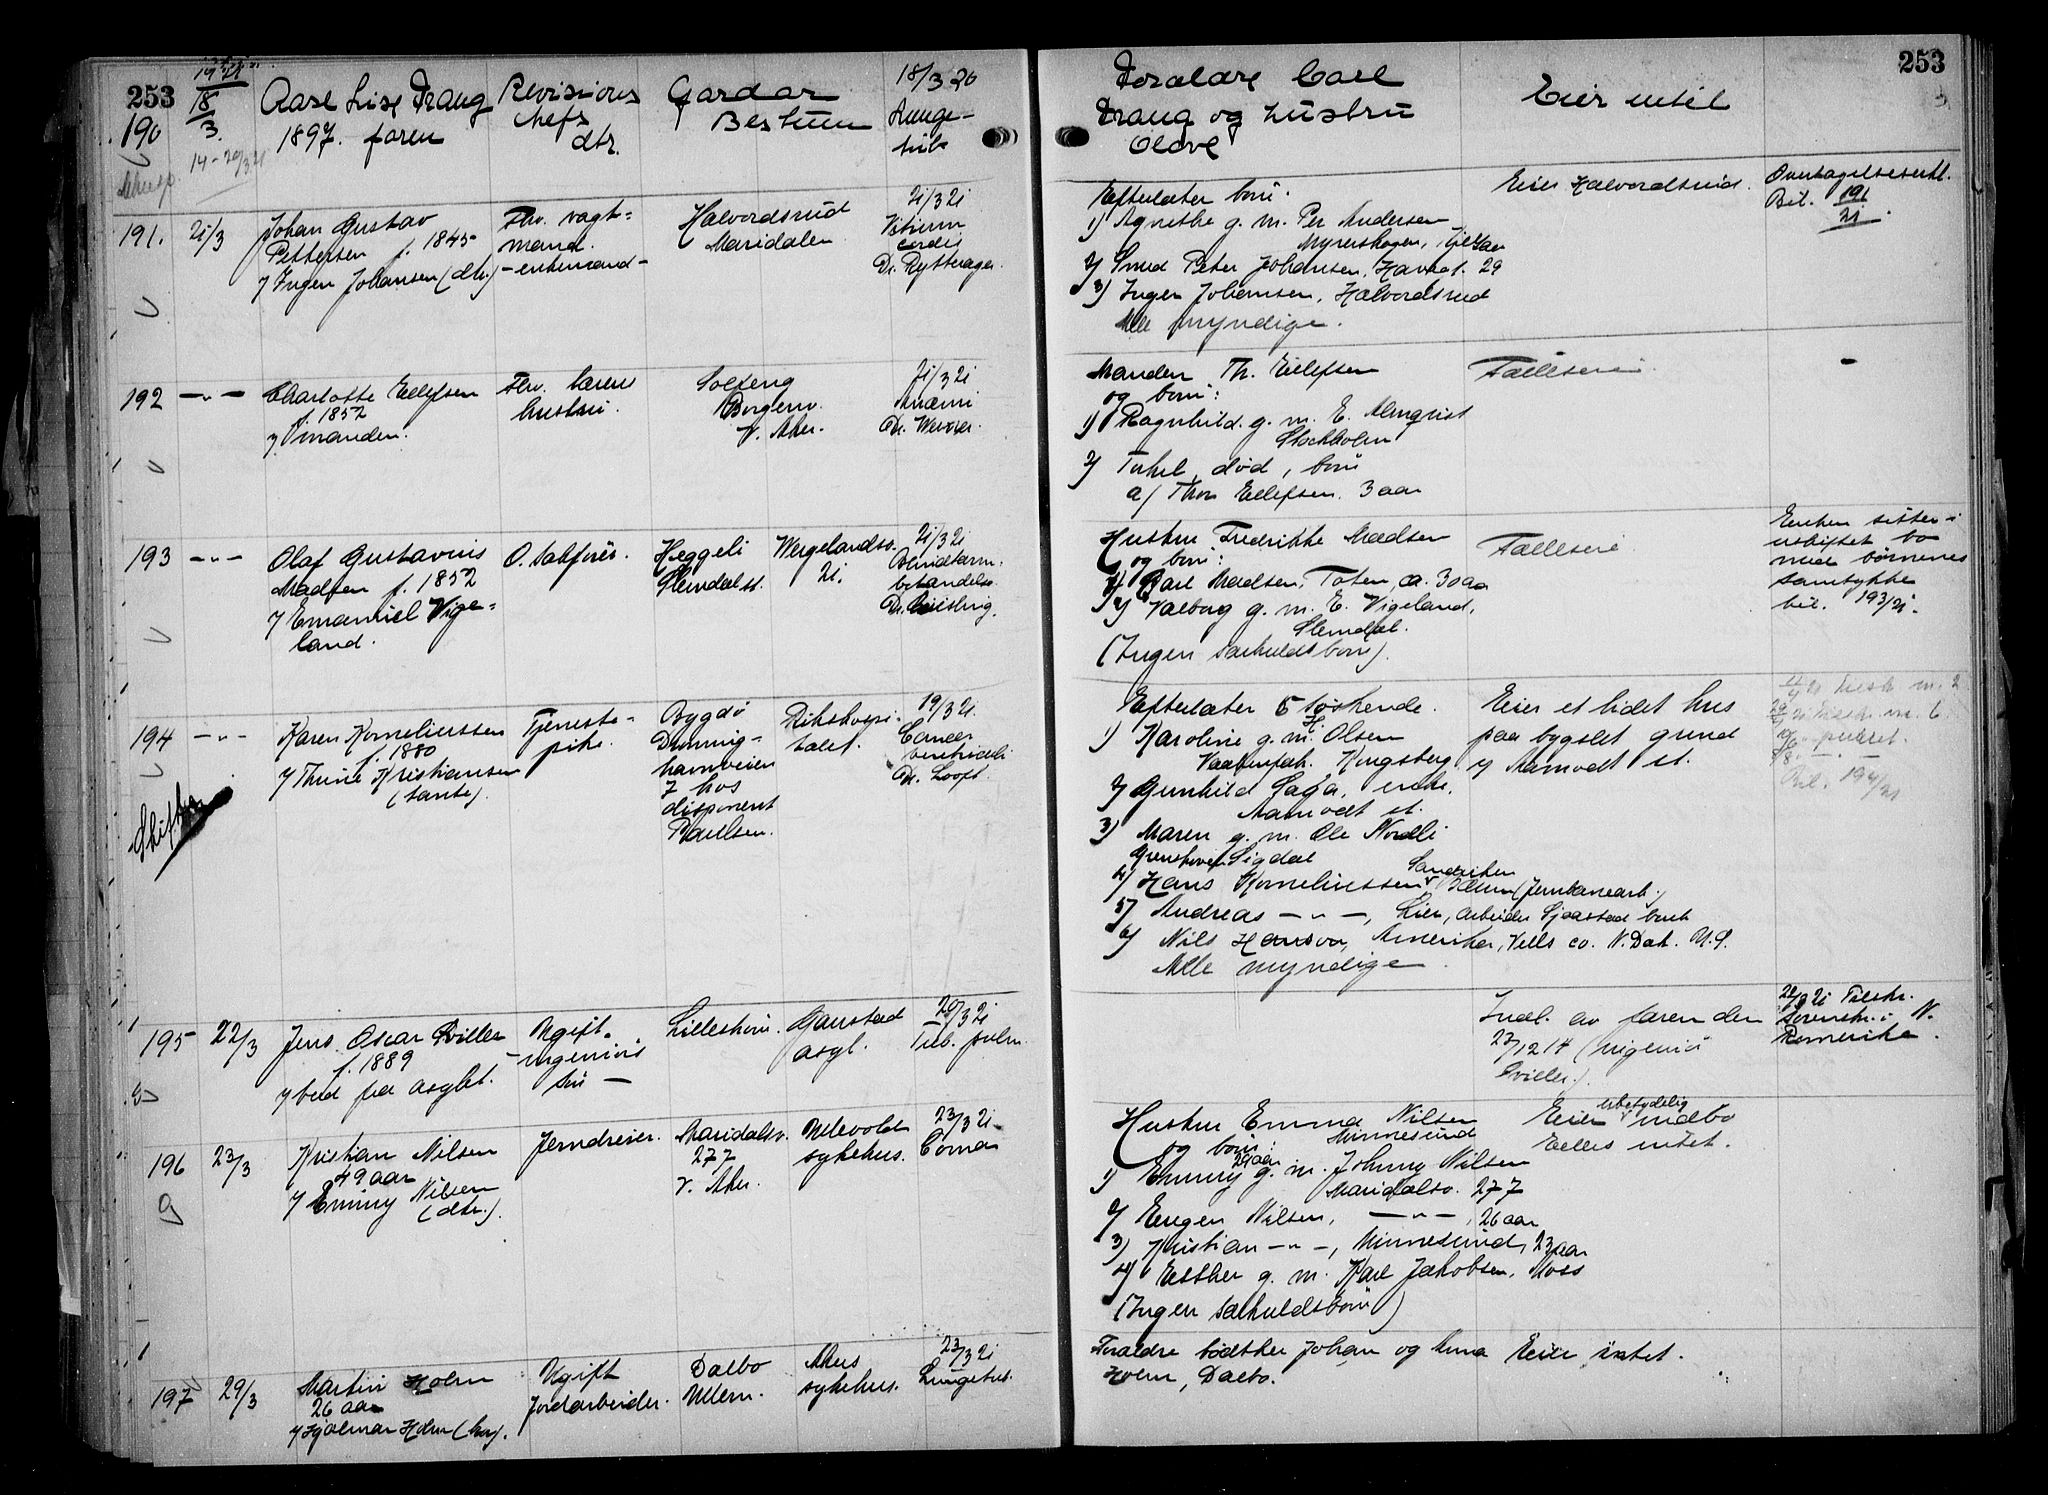 253
190
18/3
14-20/3 21
Aase Lise Traug
1897. faren
Revisions
chefs
dtr.
Gardar
Bestum
18/3 20
Lunge-
Foreldre Carl
og hustru
Eier intet
253
191.
21/3
Johan Gustav
Pettersen f. 1845
v/ Inger Johansen (dtr.)
Fhv. vagt-
mand.
-enkemand-
Halvordsrud
Maridalen
21/3 21
Vitium
cordis
Dr. Rytterager.
Efterlater barn.
1) Agnethe g. m. Per Andersen
2) Smed Peter Johansen, Havnal. 29
3) Inger Johansen, Halvordsrud
Alle myndige.
Eier Halvordsrud.
Overtagelseserkl.
Bil. 191/21.
192
-"-
Charlotte Eilefsen
f. 1852
v/ manden.
Fhv. lærers
hustru.
Solteng
Borgenv.
V. Aker.
21/3 21
Anæmi
Manden Th. Eilefsen
og barn:
1) Ragnhild. g. m. E. Almqvist
Stockholm
2) Torkel, død, barn
a/ Thor Eilefsen. 3 aar
Fælleseie
-
193
-"-
Olaf Gustavus
Madsen f. 1852
v/ Emanuel Vige-
land.
O. sakfører.
Heggeli
Slemdal st.
Wergelandsv.
21.
21/3 21
Blindtarm.
behandelse
Hustru Fredrikke Madsen
og barn:
1) Carl Madsen, Toten, ca. 30 aa
2) Valborg g. m. E. Vigeland,
Slemdal.
(Ingen særkuldsbarn).
Fælleseie
Enken sitter i
uskiftet bo
med børnenes
samtykke
bil. 193/21.
194
-"-
Skiftes
Karen Korneliussen
f. 1880
v/ Thrine Kristiansen
(tante).
Tjeneste-
pike.
Bygdø
Dronning-
havnveien
7 hos
disponent
Paulsen.
Rikshospi-
talet.
19/3 21.
Cancer
ventriculi
Dr. Looft.
Efterlater 6 søskende.
1) Karoline g. m. H. Olsen
Vaabenfab. Kongsberg
2) Gunhild Saga, enke,
Aamodt st.
3) Maren g. m. Ole Nordli
Sigdal
4) Hans Korneliussen Sandviken Bærum (Jernbanearb.)
5) Andreas -"-, Lier, arbeider Sjaastad bruk
6) Nils Hansen, Amerika, Vells co. N. Dak. U.S.
Alle myndige.
Eier et lidet hus
paa bygslet grund
v/ Aamodt st.
Bil. 194/21
195
22/3
Jens Oscar Qviller
f. 1889
v/ bud fra asylet.
Ugift.
-ingeniørs
søn -
Lillestrøm.
Gaustad
asyl.
20/3 21
Tub. pulm.
Indl. av faren den
27/12 14 (ingeniør
Qviller).
22/3 21 Tilskr.
Sorenskr. i N.
Romerike.
196
23/3
Kristian Nilsen
49 aar
v/ Emmy Nilsen
(dtr.).
Jerndreier.
Maridalsv.
277
V. Aker.
Ullevold
sykehus.
23/3 21
Coma
Hustru Emma Nilsen
Minnesund
og barn:
1) Emmy 29 aar g. m. Johnny Nilsen
Maridalsv. 277
2) Eugen Nilsen, -"-, 26 aar
3) Kristian -"-, Minnesund, 23 aar
4) Esther g. m. Karl Jakobsen, Moss
(Ingen særkuldsbarn)
Eier ubetydelig indbo
Ellers intet.
197
29/3
Martin Holm
26 aar
v/ Hjalmar Holm (bror).
Ugift
Jordarbeider.
Dalbo
Ullern.
Akers
sykehus.
23/3 21
Lungetub.
Foreldre bødtker Johan og Anna
Holm, Dalbo.
Eier intet.